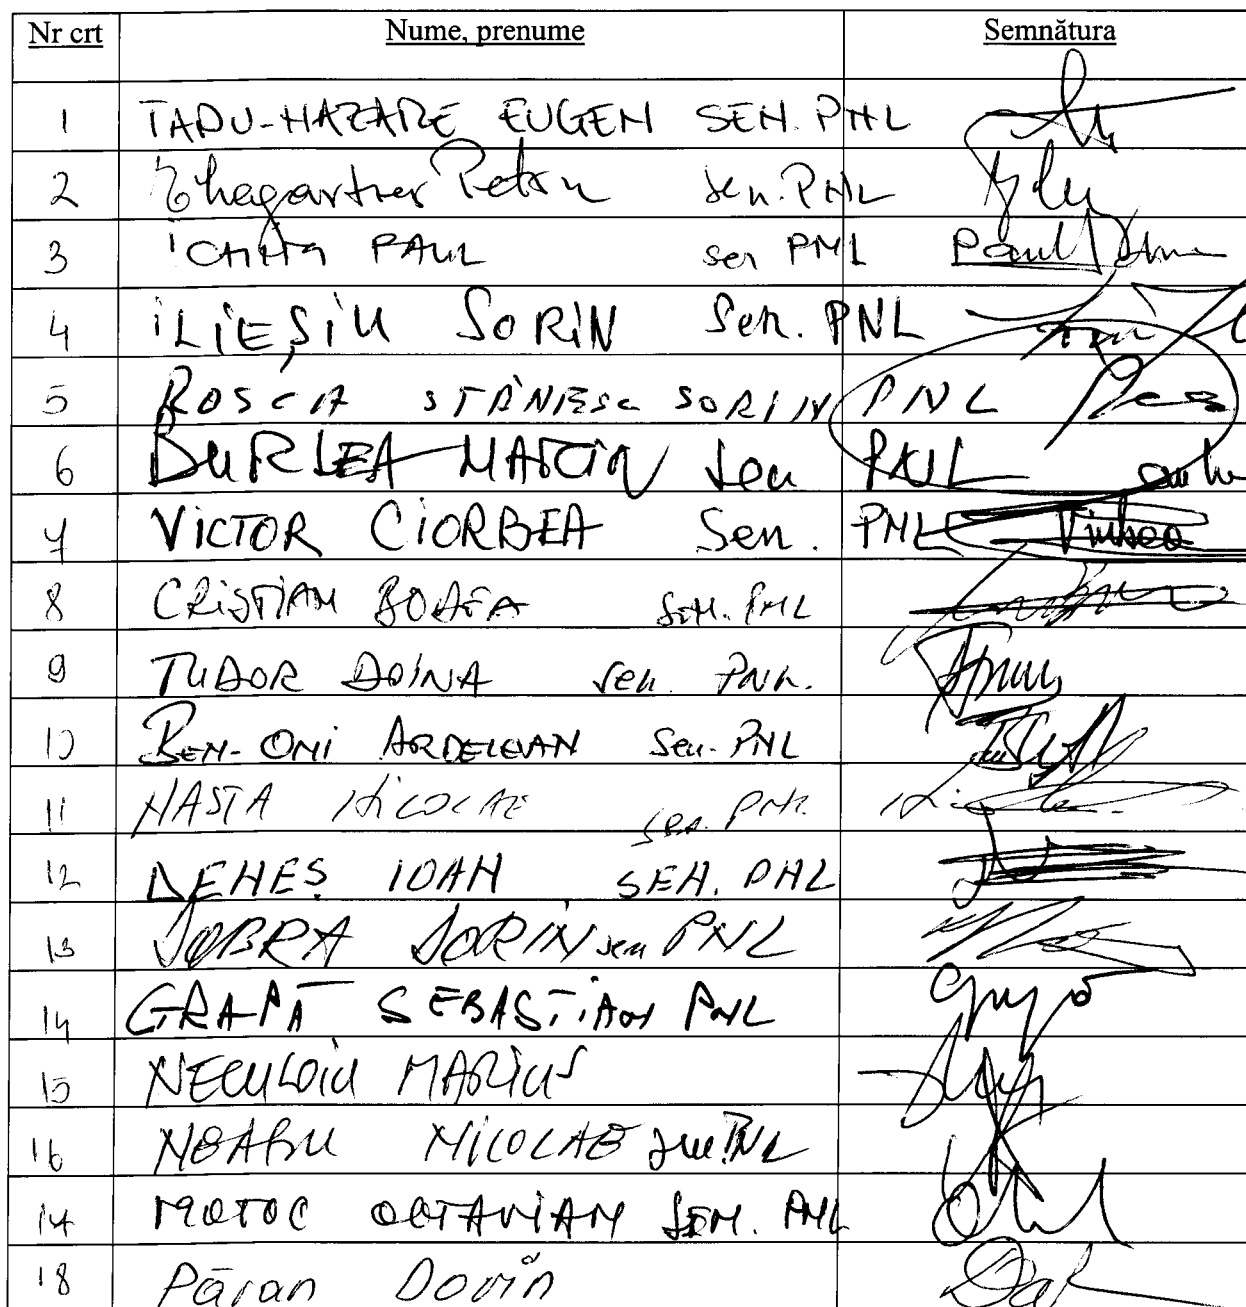 Nr crt Nume, prenume Semnătura
1 TADU-HAZARE EUGEN SEN. PNL
2 Ehegartner Petru sen. PNL
3 ichim PAUL sen PNL Paul
4 iLiEȘiU SORiN Sen. PNL
5 ROSCA STĂNESC SORIN PNL
6 BURLEA MARIN sen PNL
7 VICTOR CIORBEA Sen. PNL
8 CRISTIAN BODEA SEN. PNL
9 TUDOR DOINA sen. PNL.
10 BEN-ONI ARDELEAN Sen. PNL
11 NASTA NICOLAE sen. PNL
12 DENEȘ IOAN SEN. PNL
13 DOBRA DORIN sen PNL
14 GRAPĂ SEBASTIAN PNL
15 NECULOIU MARIUS
16 NEAGU NICOLAE sen PNL
17 MOTOC OCTAVIAN SEN. PNL
18 Păran Dorin